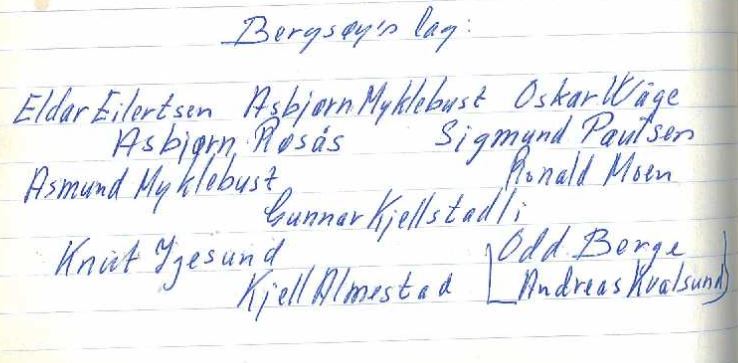 Bergsøy's lag:
Eldar Eilertsen Asbjørn Myklebust Oskar Wåge
Asbjørn Røsås Sigmund Paulsen
Asmund Myklebust Ronald Moen
Gunnar Kjellstadli
Knut Igesund Odd Berge
Kjell Almestad [Andreas Kvalsund]